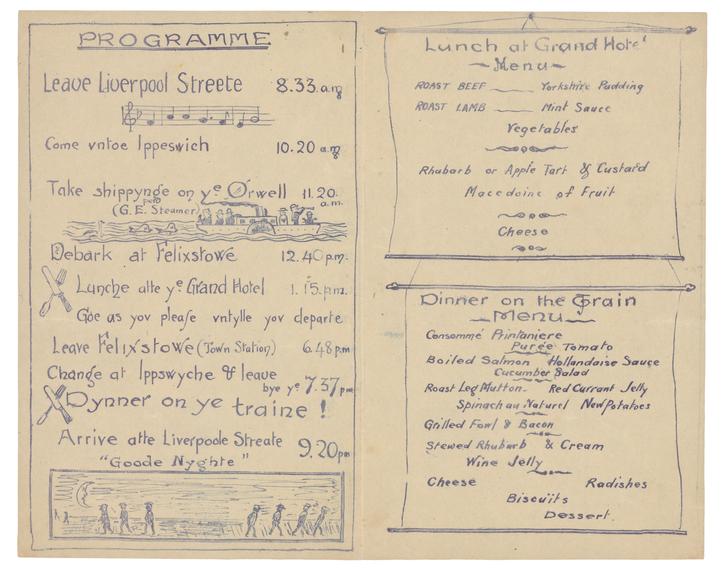 PROGRAMME
Leave Liverpool Streete 8.33.a.m
Come vntoe Ippeswich 10.20 a.m.
Take shippynge on ye Orwell 11.20. a.m.
(G.E. Steamer)
Debark at Felixstowe 12.40 p.m.
Lunche atte ye Grand Hotel 1.15.p.m.
Goe as yov please vntylle yov departe
Leave Felixstowe (Town Station) 6.48 p.m
Change at Ippswyche & leave
bye ye 7.37 pm
Dynner on ye traine!
Arrive atte Liverpoole Streate 9.20 pm
"Goode Nyghte"
Lunch at Grand Hotel
Menu
ROAST BEEF Yorkshire Pudding
ROAST LAMB Mint Sauce
Vegetables
Rhubarb or Apple Tart & Custard
Macedoine of Fruit
Cheese
Dinner on the Train
Menu
Consommé Printaniere
Purée Tomato
Boiled Salmon Hollandaise Sauce
Cucumber Salad
Roast Leg Mutton. Red Currant Jelly
Spinach au Naturel New Potatoes
Grilled Fowl & Bacon
Stewed Rhubarb & Cream
Wine Jelly
Cheese Radishes
Biscuits
Dessert.